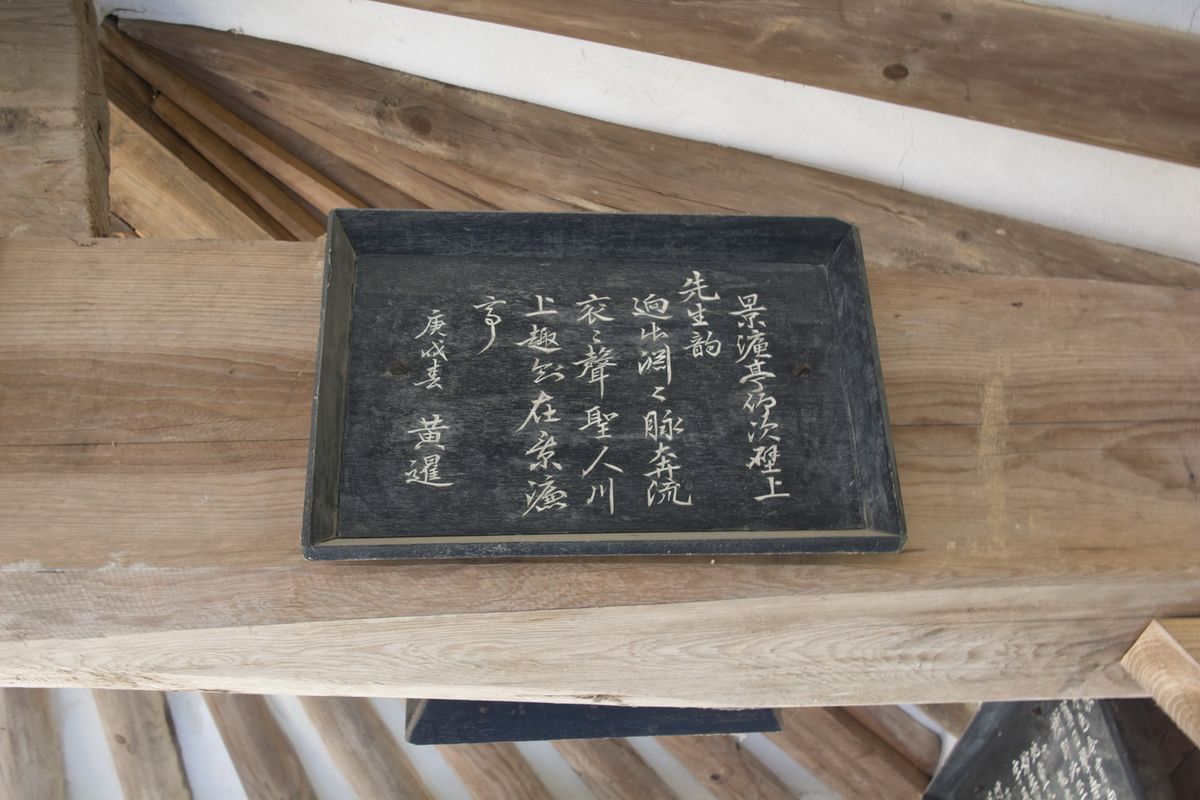 景濂亭仰次壁上
先生韵
逈出淵〻脉奔流
衮〻聲聖人川
上趣知在景濂
亭
庚戌春 黃暹